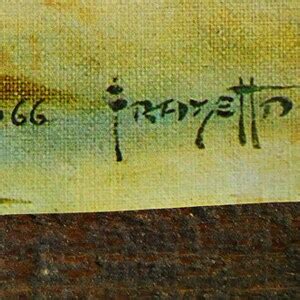 66 Frazetta